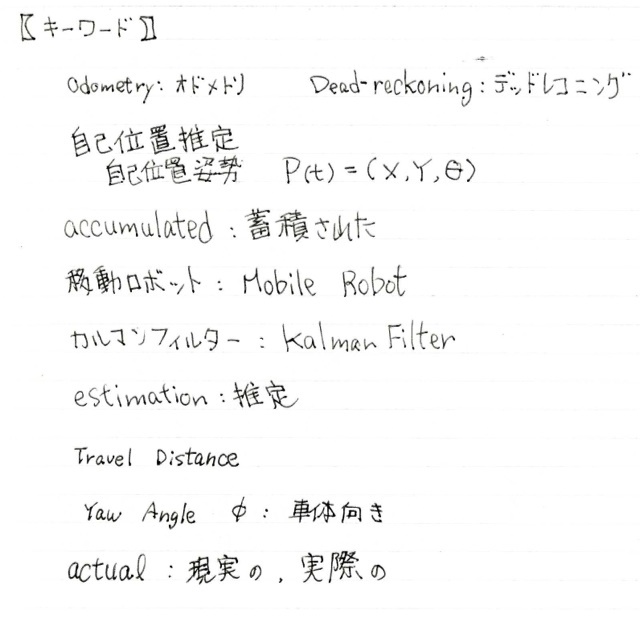 【キーワード】
Odometry: オドメトリ Dead-reckoning: デッドレコニング
自己位置推定
自己位置姿勢 P(t) = (X, Y, θ)
accumulated : 蓄積された
移動ロボット : Mobile Robot
カルマンフィルター : Kalman Filter
estimation : 推定
Travel Distance
Yaw Angle φ : 車体向き
actual : 現実の, 実際の